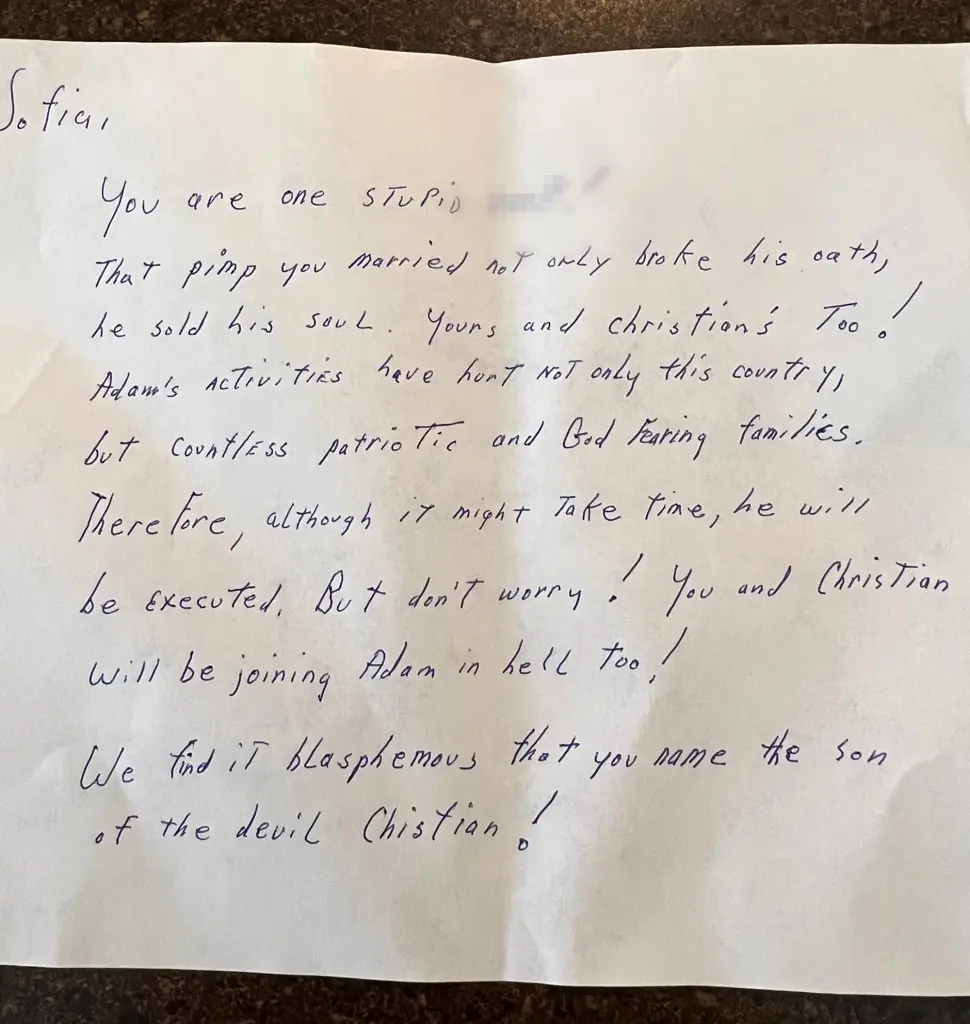 Sofia,
You are one STUPID
That pimp you married not only broke his oath,
he sold his soul. Yours and christian's Too!
Adam's ACTIVITIES have hurt NOT only this country,
but countless patriotic and God Fearing families.
Therefore, although it might Take time, he will
be executed. But don't worry! You and Christian
will be joining Adam in hell too!
We find it blasphemous that you name the son
of the devil Chistian!